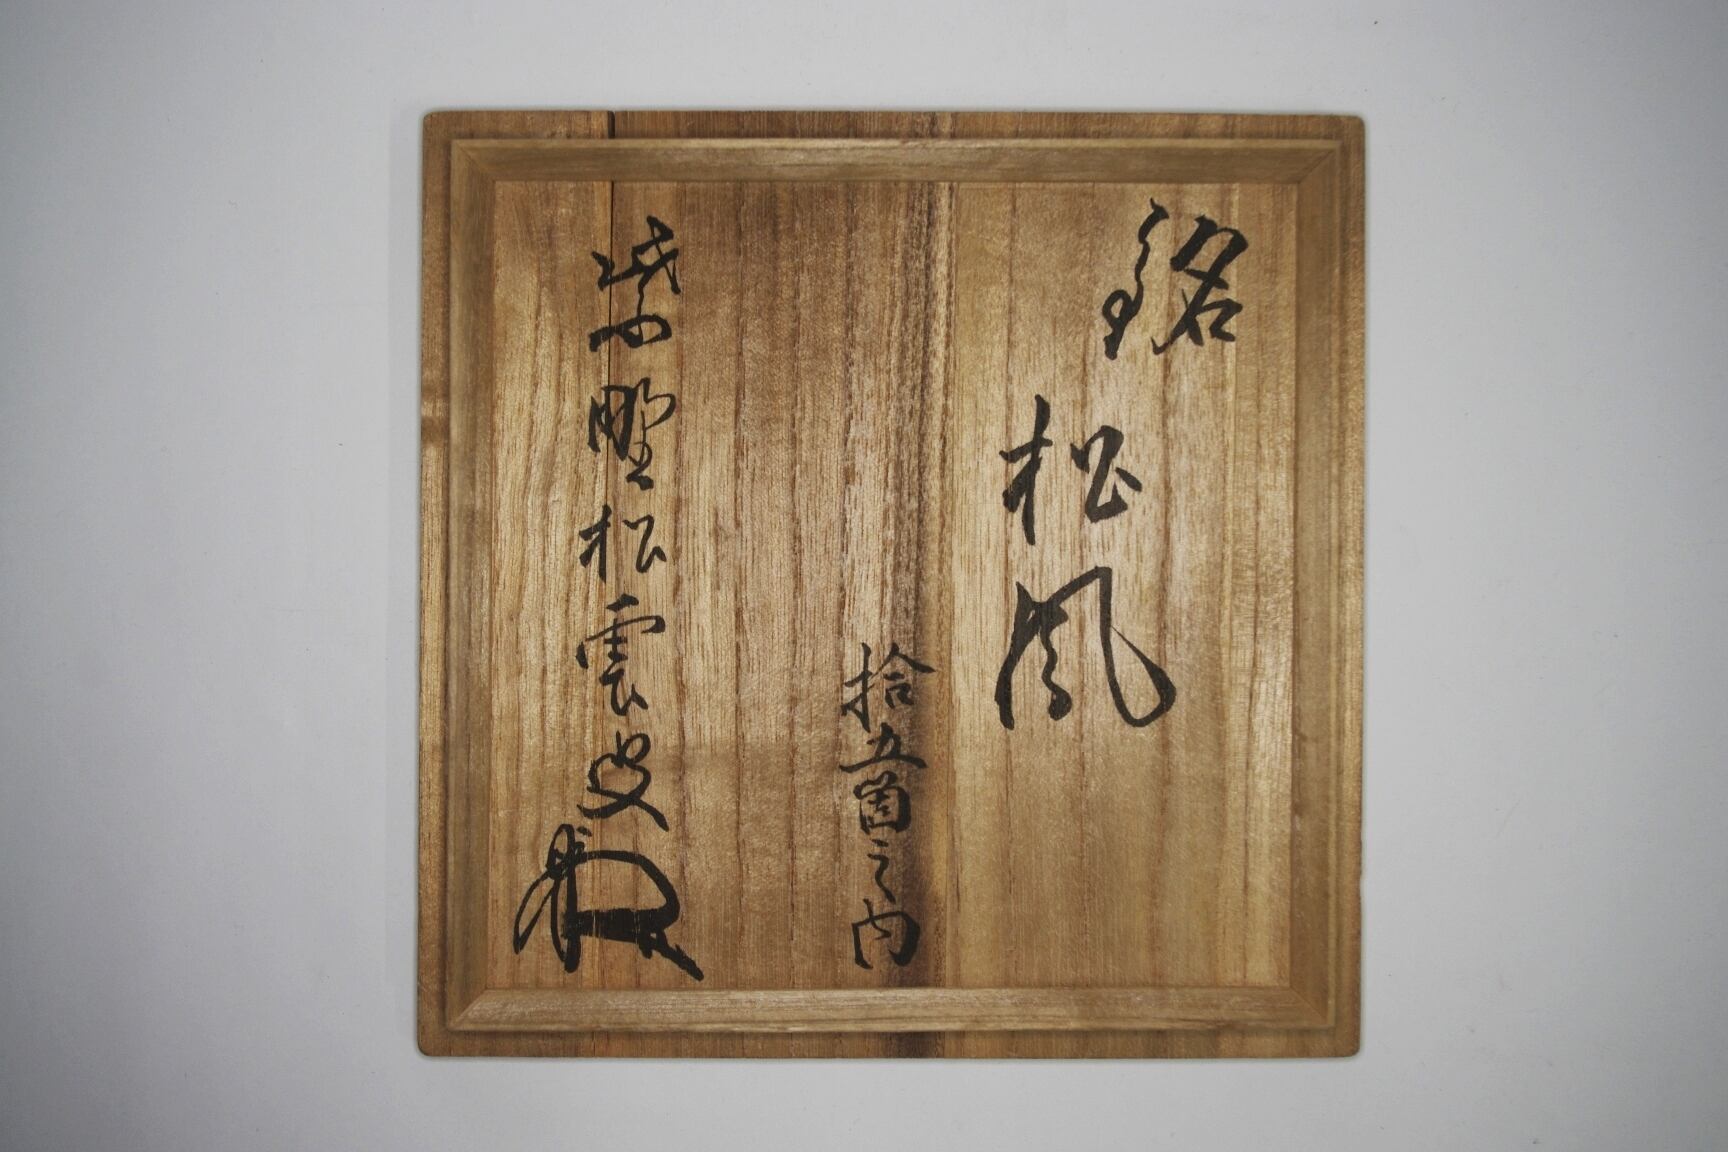 銘
松風
拾五箇之内
紫野松雲叟